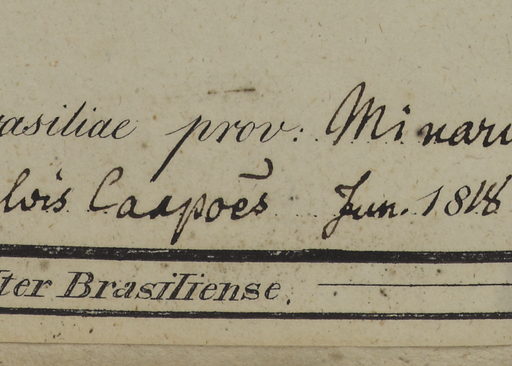 asiliae prov: Minaru
lvis Capoēs Jun. 1818
ter Brasiliense.